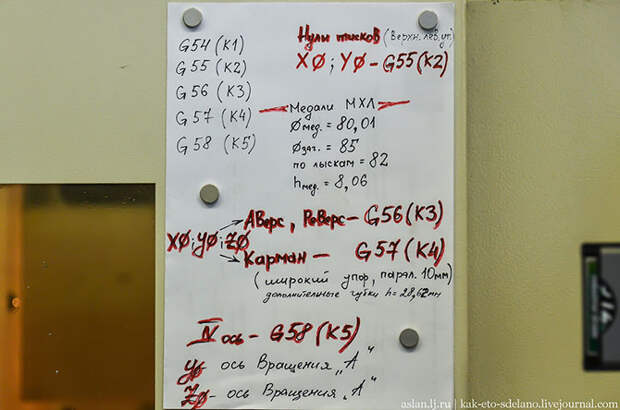 G54 (K1)
G55 (K2)
G56 (K3)
G57 (K4)
G58 (K5)
Нули тисков (Верхн. лев. уг.)
XØ; YØ - G55 (K2)
Медали МХЛ
Ø мед. = 80,01
Ø заг. = 85
по лыскам = 82
h мед. = 8,06
XØ; YØ; ZØ
Аверс, Реверс - G56 (K3)
Карман - G57 (K4)
(широкий упор, парал. 10мм)
дополнительные губки h = 28,62мм
IV ось - G58 (K5)
YØ - ось Вращения „А"
ZØ - ось Вращения „А"
aslan.lj.ru | kak-eto-sdelano.livejournal.com